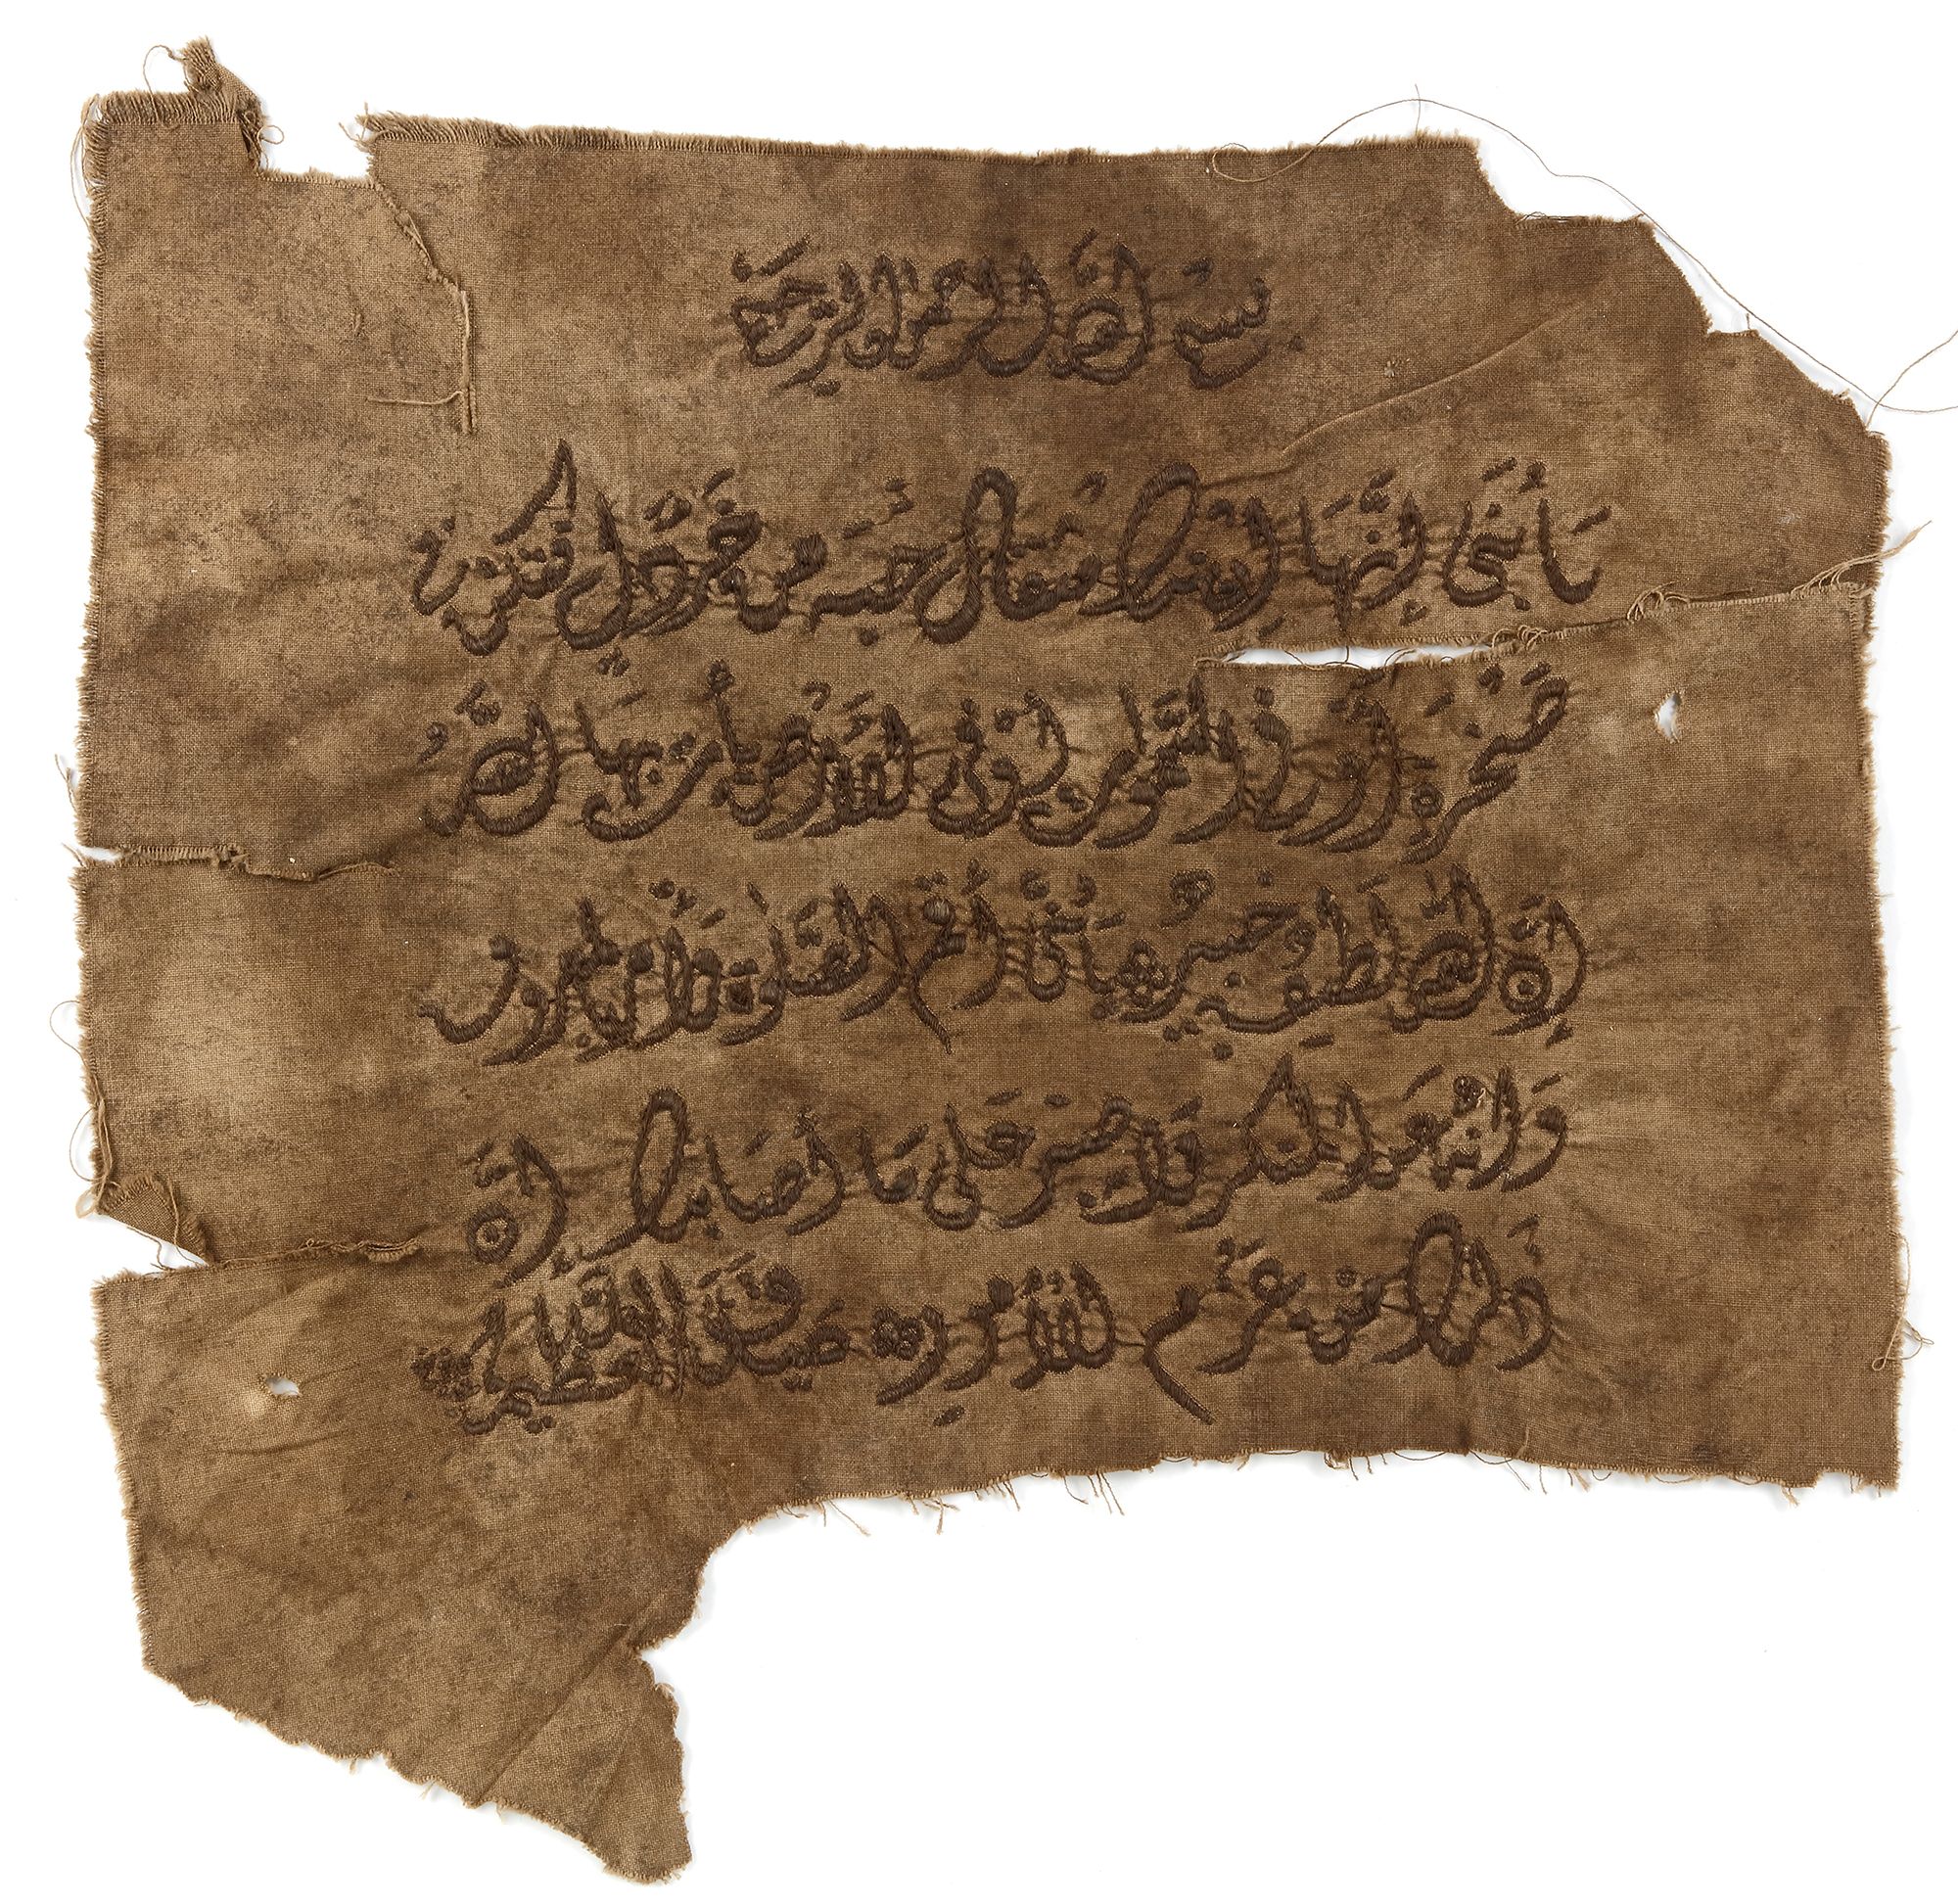 بسم الله الرحمن الرحيم
يا بني إنها إن تك مثقال حبة من خردل فتكن في
صخرة أو في السموات أو في الأرض يأت بها الله
إن الله لطيف خبير يا بني أقم الصلوة وأمر بالمعروف
وانه عن المنكر واصبر على ما أصابك إن
ذلك من عزم الأمور صدق الله العظيم